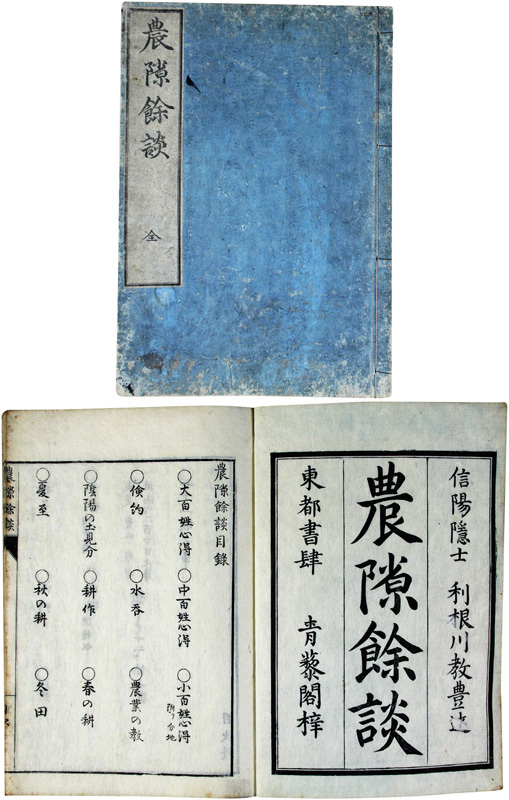 農隙餘談
全
信陽隱士 利根川教豊述
農隙餘談
東都書肆 青藜閣梓
農隙餘談目録
○大百姓心得 ○中百姓心得 ○小百姓心得 附り分地
○倹約 ○水呑 ○農業の教
○陰陽の土見分 ○耕作 ○春の耕
○夏至 ○秋の耕 ○冬田
農隙餘談